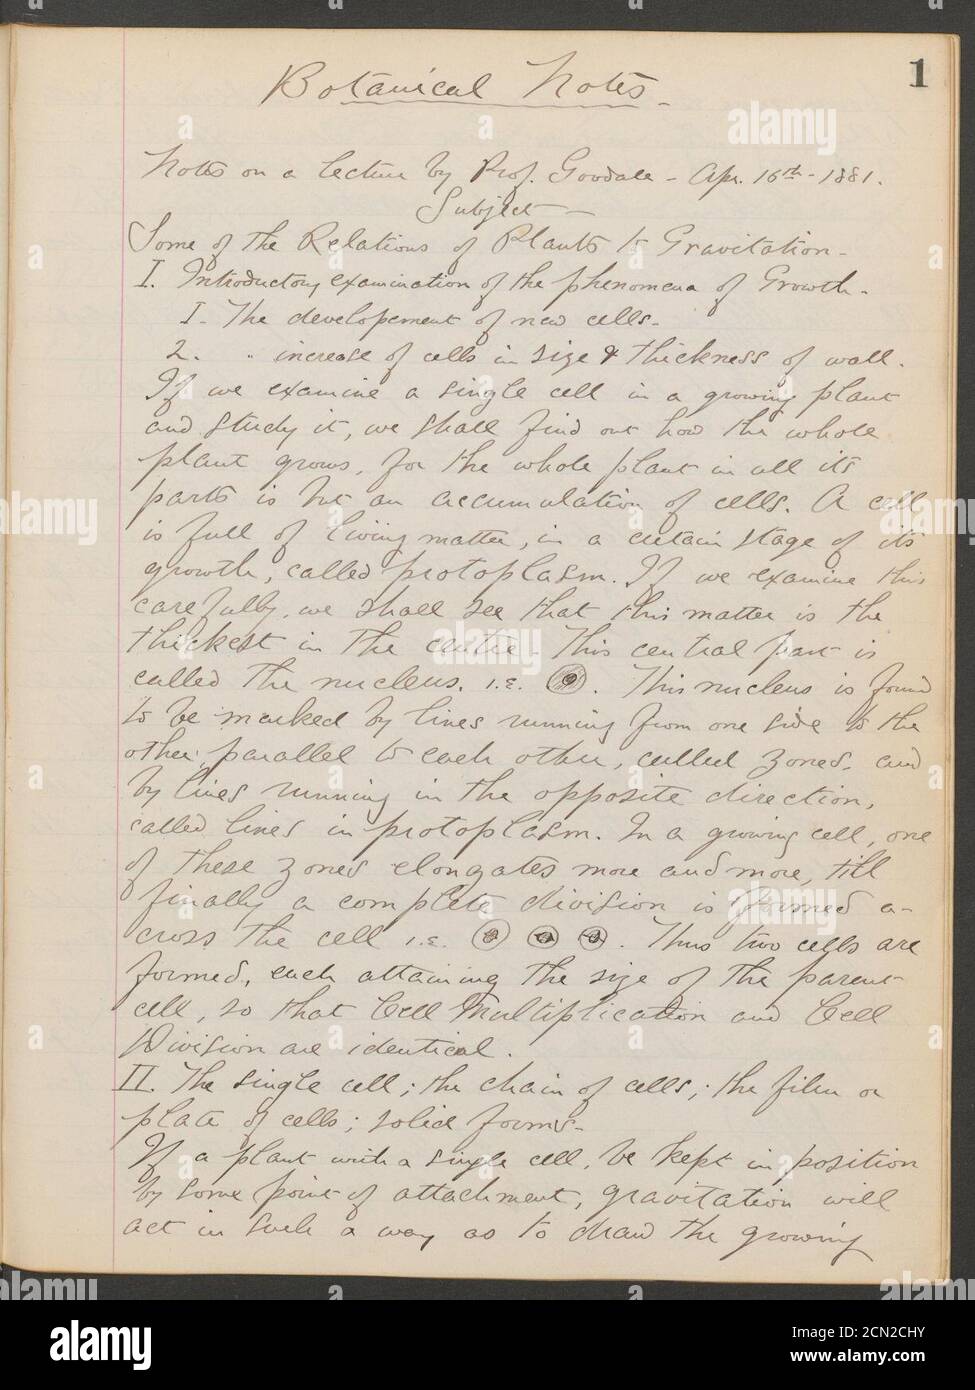 1
Botanical Notes.
Notes on a lecture by Prof. Goodale - Apr. 16th - 1881.
Subject -
Some of the Relations of Plants to Gravitation.
I. Introductory examination of the phenomena of Growth.
I. The developement of new cells.
2. " increase of cells in size & thickness of wall.
If we examine a single cell in a growing plant
and study it, we shall find out how the whole
plant grows, for the whole plant in all its
parts is but an accumulation of cells. A cell
is full of living matter, in a certain stage of its
growth, called protoplasm. If we examine this
carefully, we shall see that this matter is the
thickest in the centre. This central part is
called the nucleus. i.e. . This nucleus is found
to be marked by lines running from one side to the
other, parallel to each other, called zones, and
by lines running in the opposite direction,
called lines in protoplasm. In a growing cell, one
of these zones elongates more and more, till
finally a complete division is formed a-
cross the cell i.e. . Thus two cells are
formed, each attaining the size of the parent
cell, so that Cell Multiplication and Cell
Division are identical.
II. The single cell; the chain of cells; the film or
plate of cells; solid forms.
If a plant with a single cell, be kept in position
by some point of attachment, gravitation will
act in such a way as to draw the growing
alamy
Image ID: 2CN2CHY
www.alamy.com